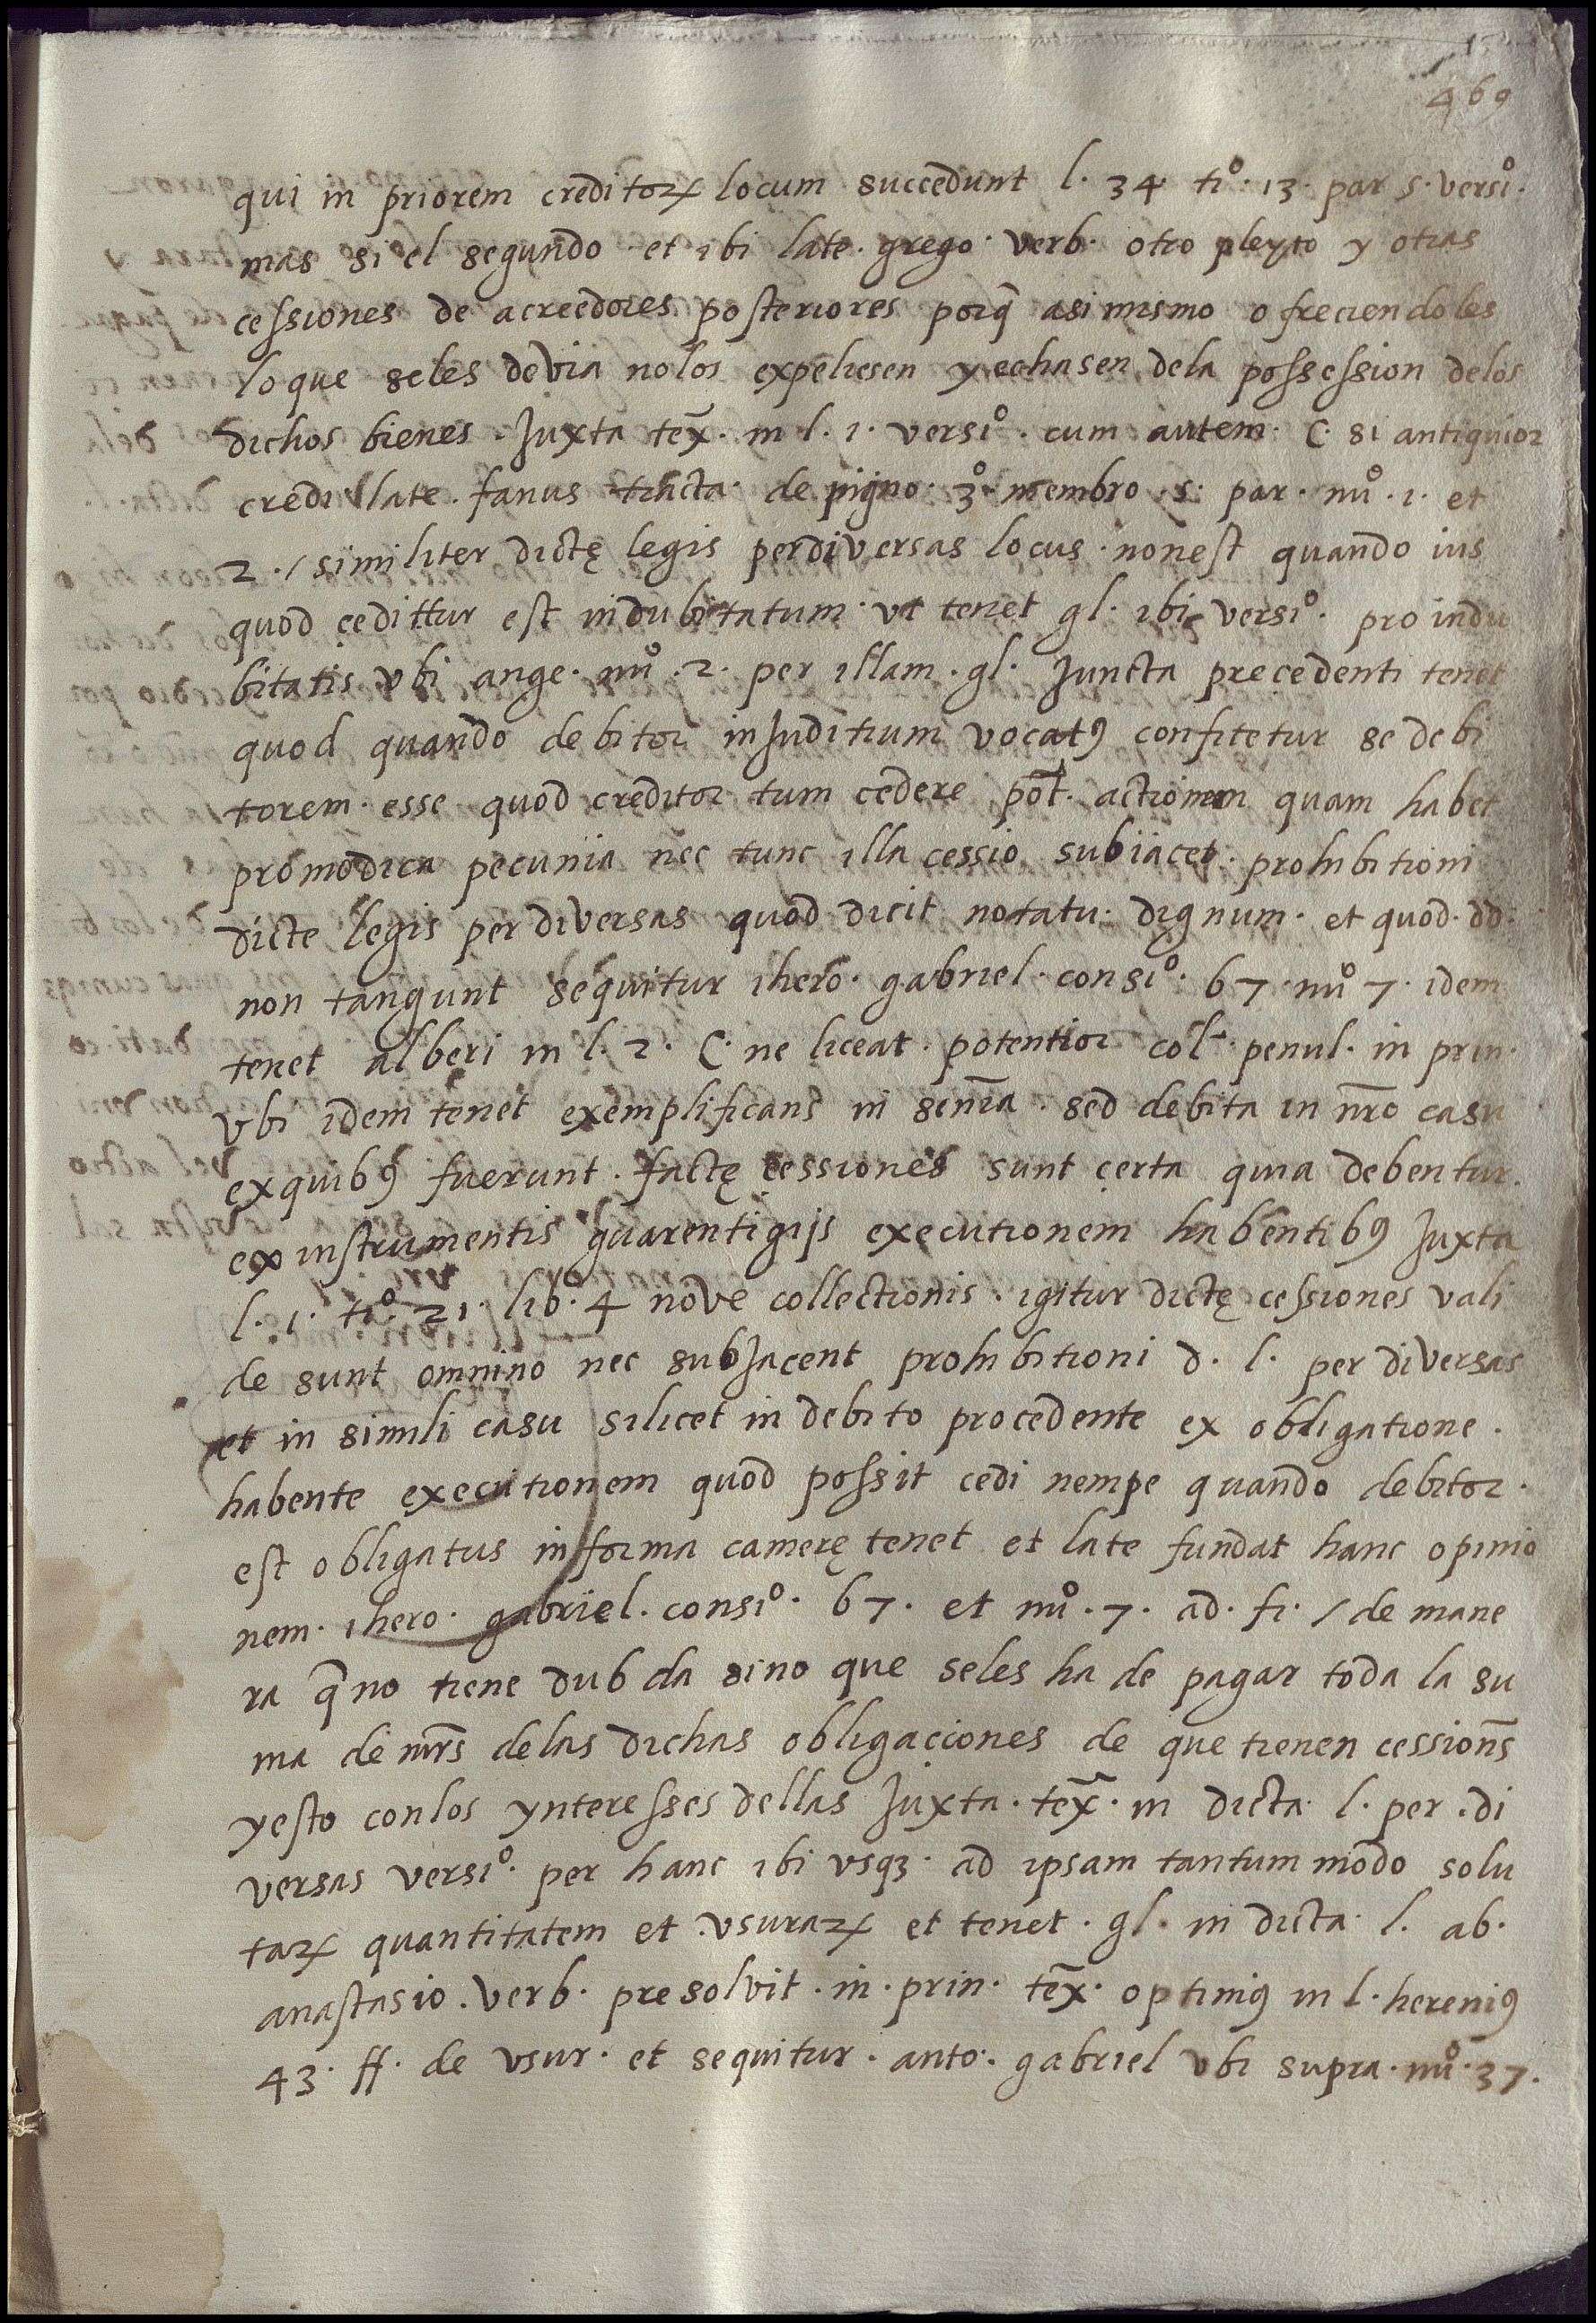 469
qui in priorem creditoꝝ locum succedunt l. 34 tiº. 13. par 5. versiº.
mas si el segundo et ibi late. grego. verb. otro pleyto y otras
cessiones de acreedores posteriores porq̃ asi mismo ofreciendoles
lo que seles devia nolos expeliesen y echasen dela possession delos
dichos bienes. Juxta tex̃. in l. 1. versiº. cum autem. C. si antiquior
credi. late. fanus tracta. de pigno. 3º. membro. 5. par. nuº. 1. et
2. / similiter dictę legis perdiversas locus. nonest quando ius
quod cedittur est indubitatum. vt tenet gl. ibi versiº. pro indu
bitatis vbi ange. nuº. 2. per illam. gl. Juncta precedenti tenet
quod quando debitor inJuditium vocatꝰ confitetur se debi
torem. esse quod creditor tum cedere pot̃. actionem quam habet
promodica pecunia nec tunc illa cessio subiacet. prohibitioni
dicte legis perdiversas quod dicit notatu. dignum. et quod. dd.
non tangunt sequitur ihero. gabriel. consiº. 67. nuº 7. idem
tenet alberi in l. 2. C. ne liceat. potentior col. penul. in prin.
vbi idem tenet exemplificans in senĩa. sed debita in nrõ casu
exquibꝰ fuerunt. factę cessiones sunt certa quia debentur.
ex instrumentis guarentigijs executionem habentibꝰ Juxta
l. 1. tiº. 21. libº. 4 nove collectionis. igitur dictę cessiones vali
de sunt omnino nec subJacent prohibitioni d. l. per diversas
et in simili casu silicet in debito procedente ex obligatione.
habente executionem quod possit cedi nempe quando debitor.
est obligatus informa camerę tenet et late fundat hanc opinio
nem. ihero. gabriel. consiº. 67. et nuº. 7. ad. fi. / de mane
ra q̃ no tiene dubda sino que seles ha de pagar toda la su
ma de mrs̃ delas dichas obligaciones de que tienen cessioñs
yesto conlos ynteresses dellas Juxta. tex̃. in dicta. l. per. di
versas versiº. per hanc ibi vsqꝫ. ad ipsam tantum modo solu
taꝝ quantitatem et vsuraꝝ et tenet. gl. in dicta. l. ab.
anastasio. verb. presolvit. in. prin. tex̃. optimꝰ in l. hereniꝰ
43. ff. de vsur. et sequitur. anto. gabriel vbi supra. nuº. 37.